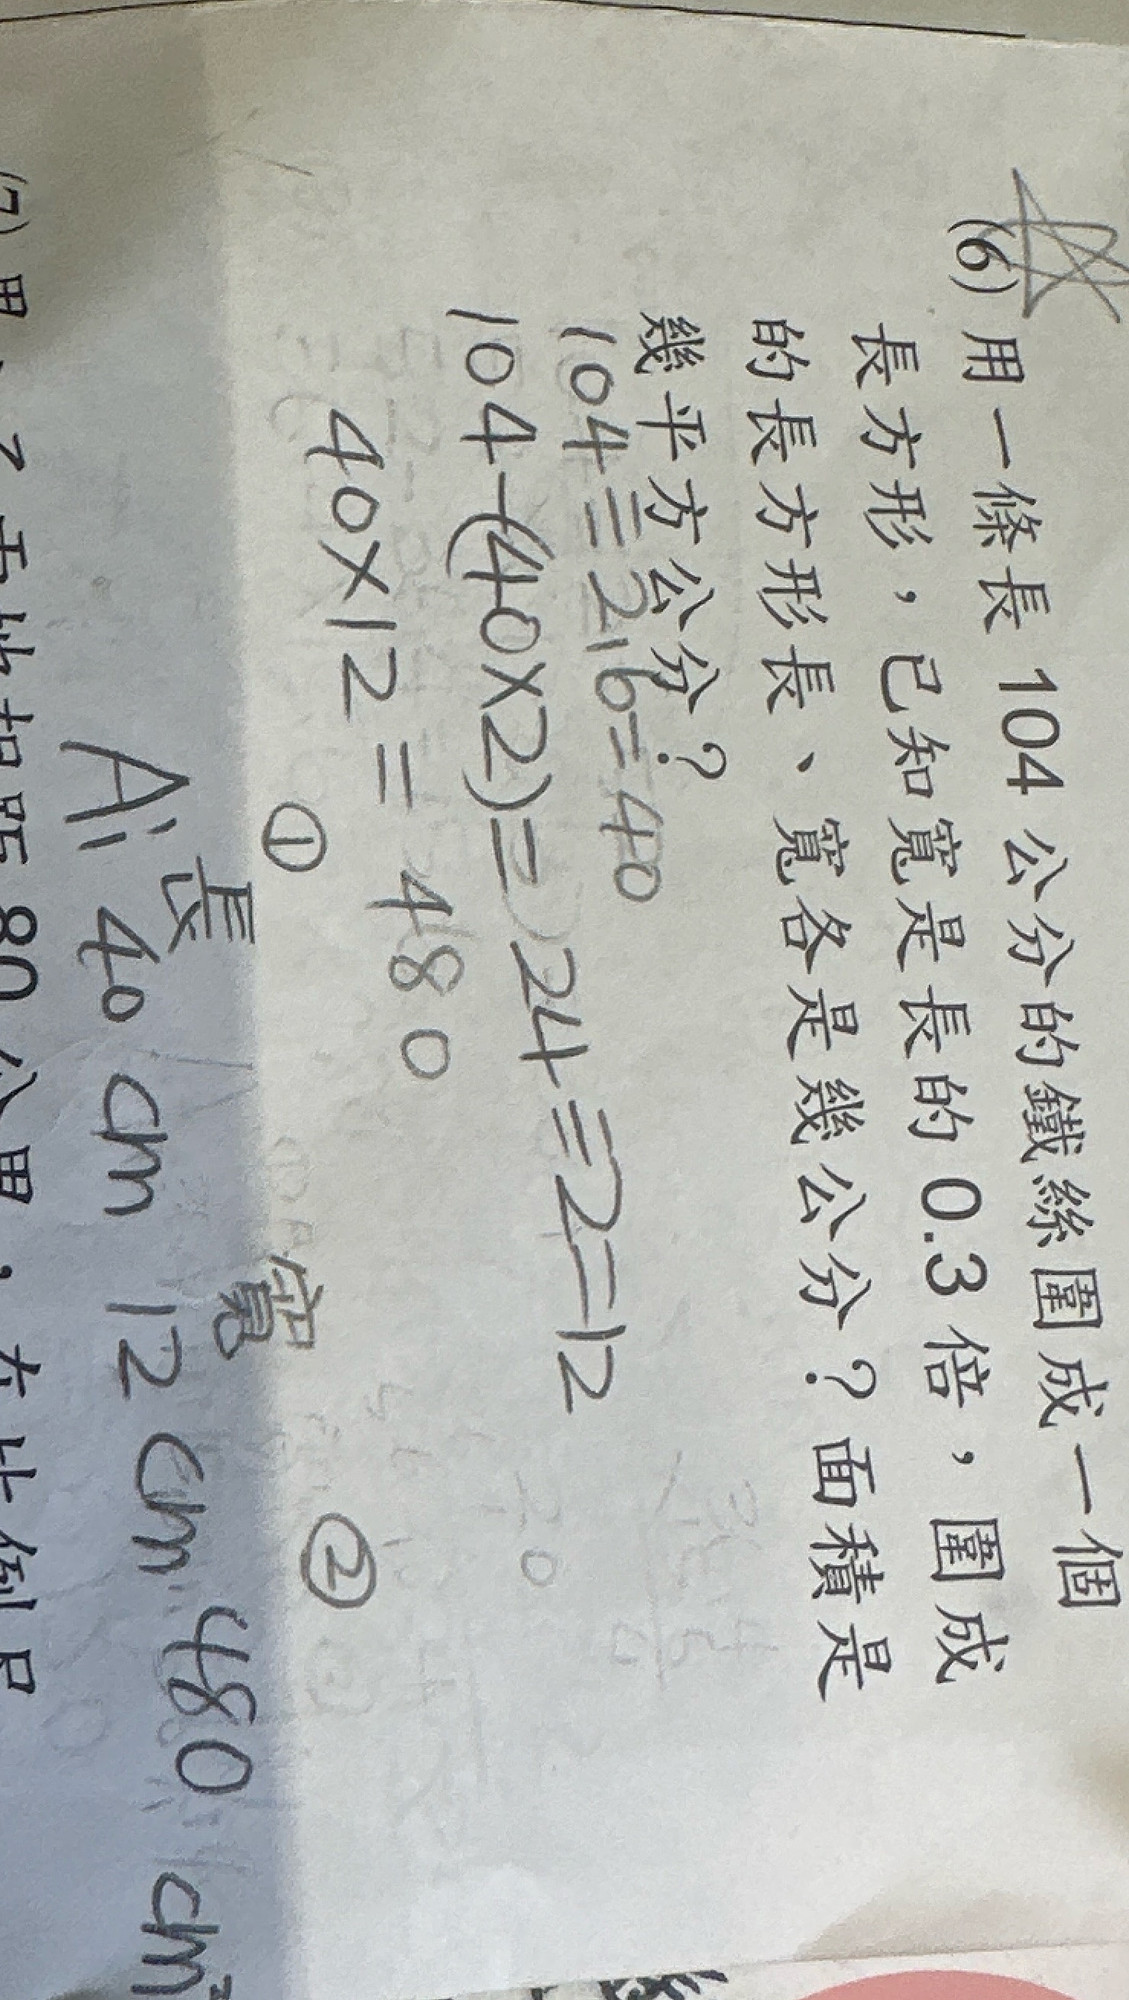 (6) 用一條長 104 公分的鐵絲圍成一個
長方形，已知寬是長的 0.3 倍，圍成
的長方形長、寬各是幾公分？面積是
幾平方公分？
104÷2.6=40
104-(40×2)=24÷2=12
40×12=480
① ②
長 寬
A: 40 cm 12 cm 480 cm²